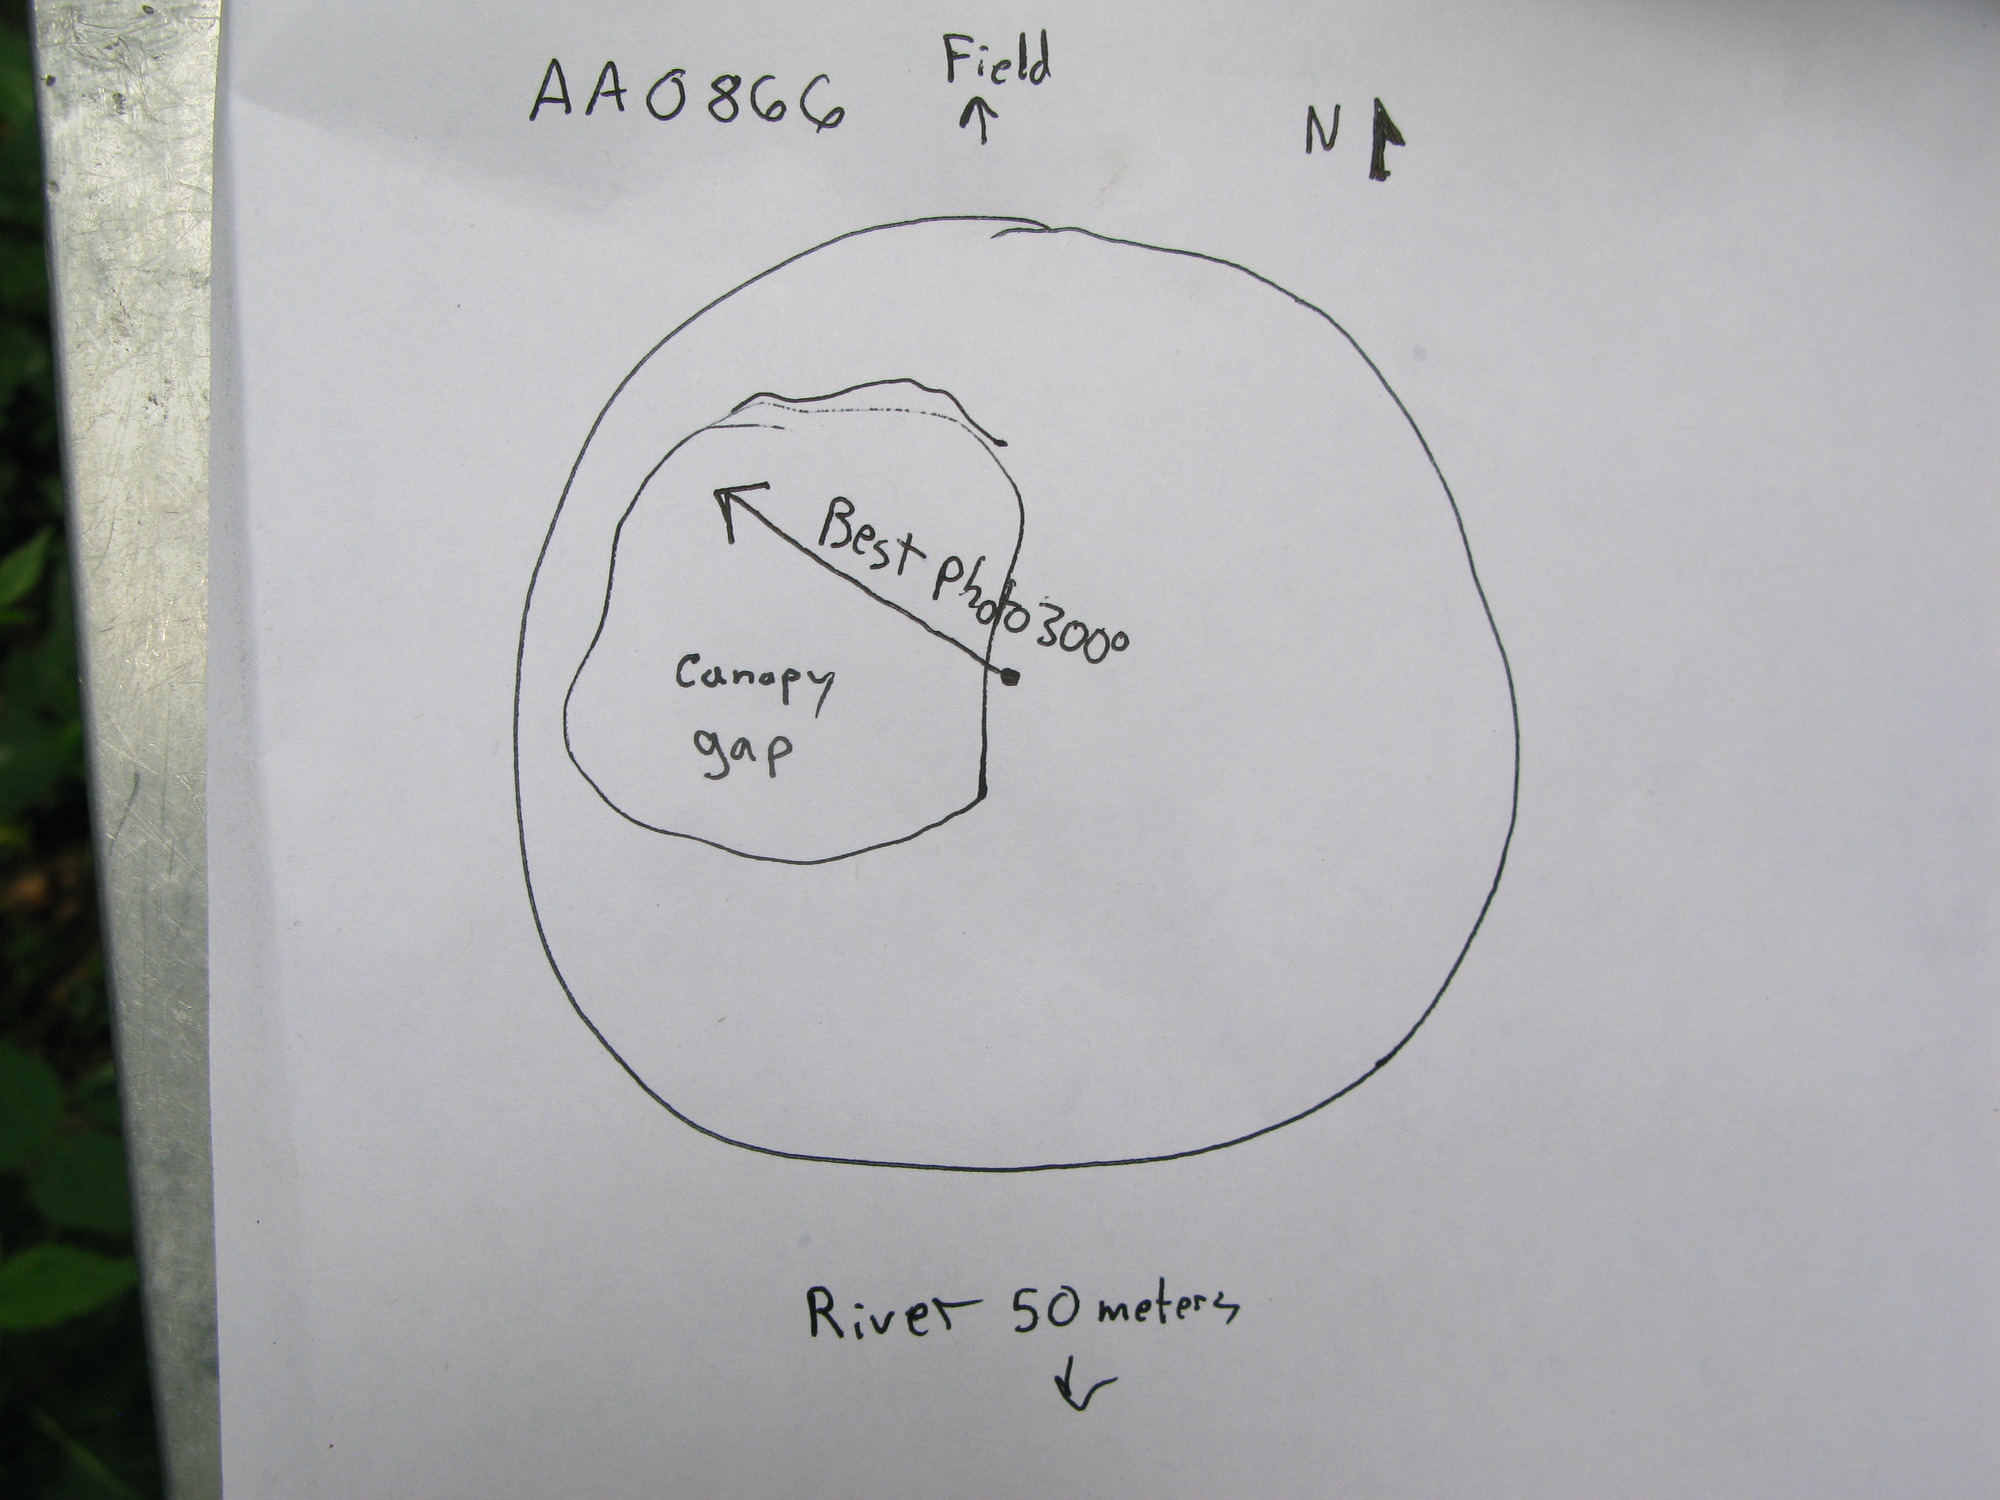 AA0866
Field
N
Best photo 300°
Canopy
gap
River 50 meters